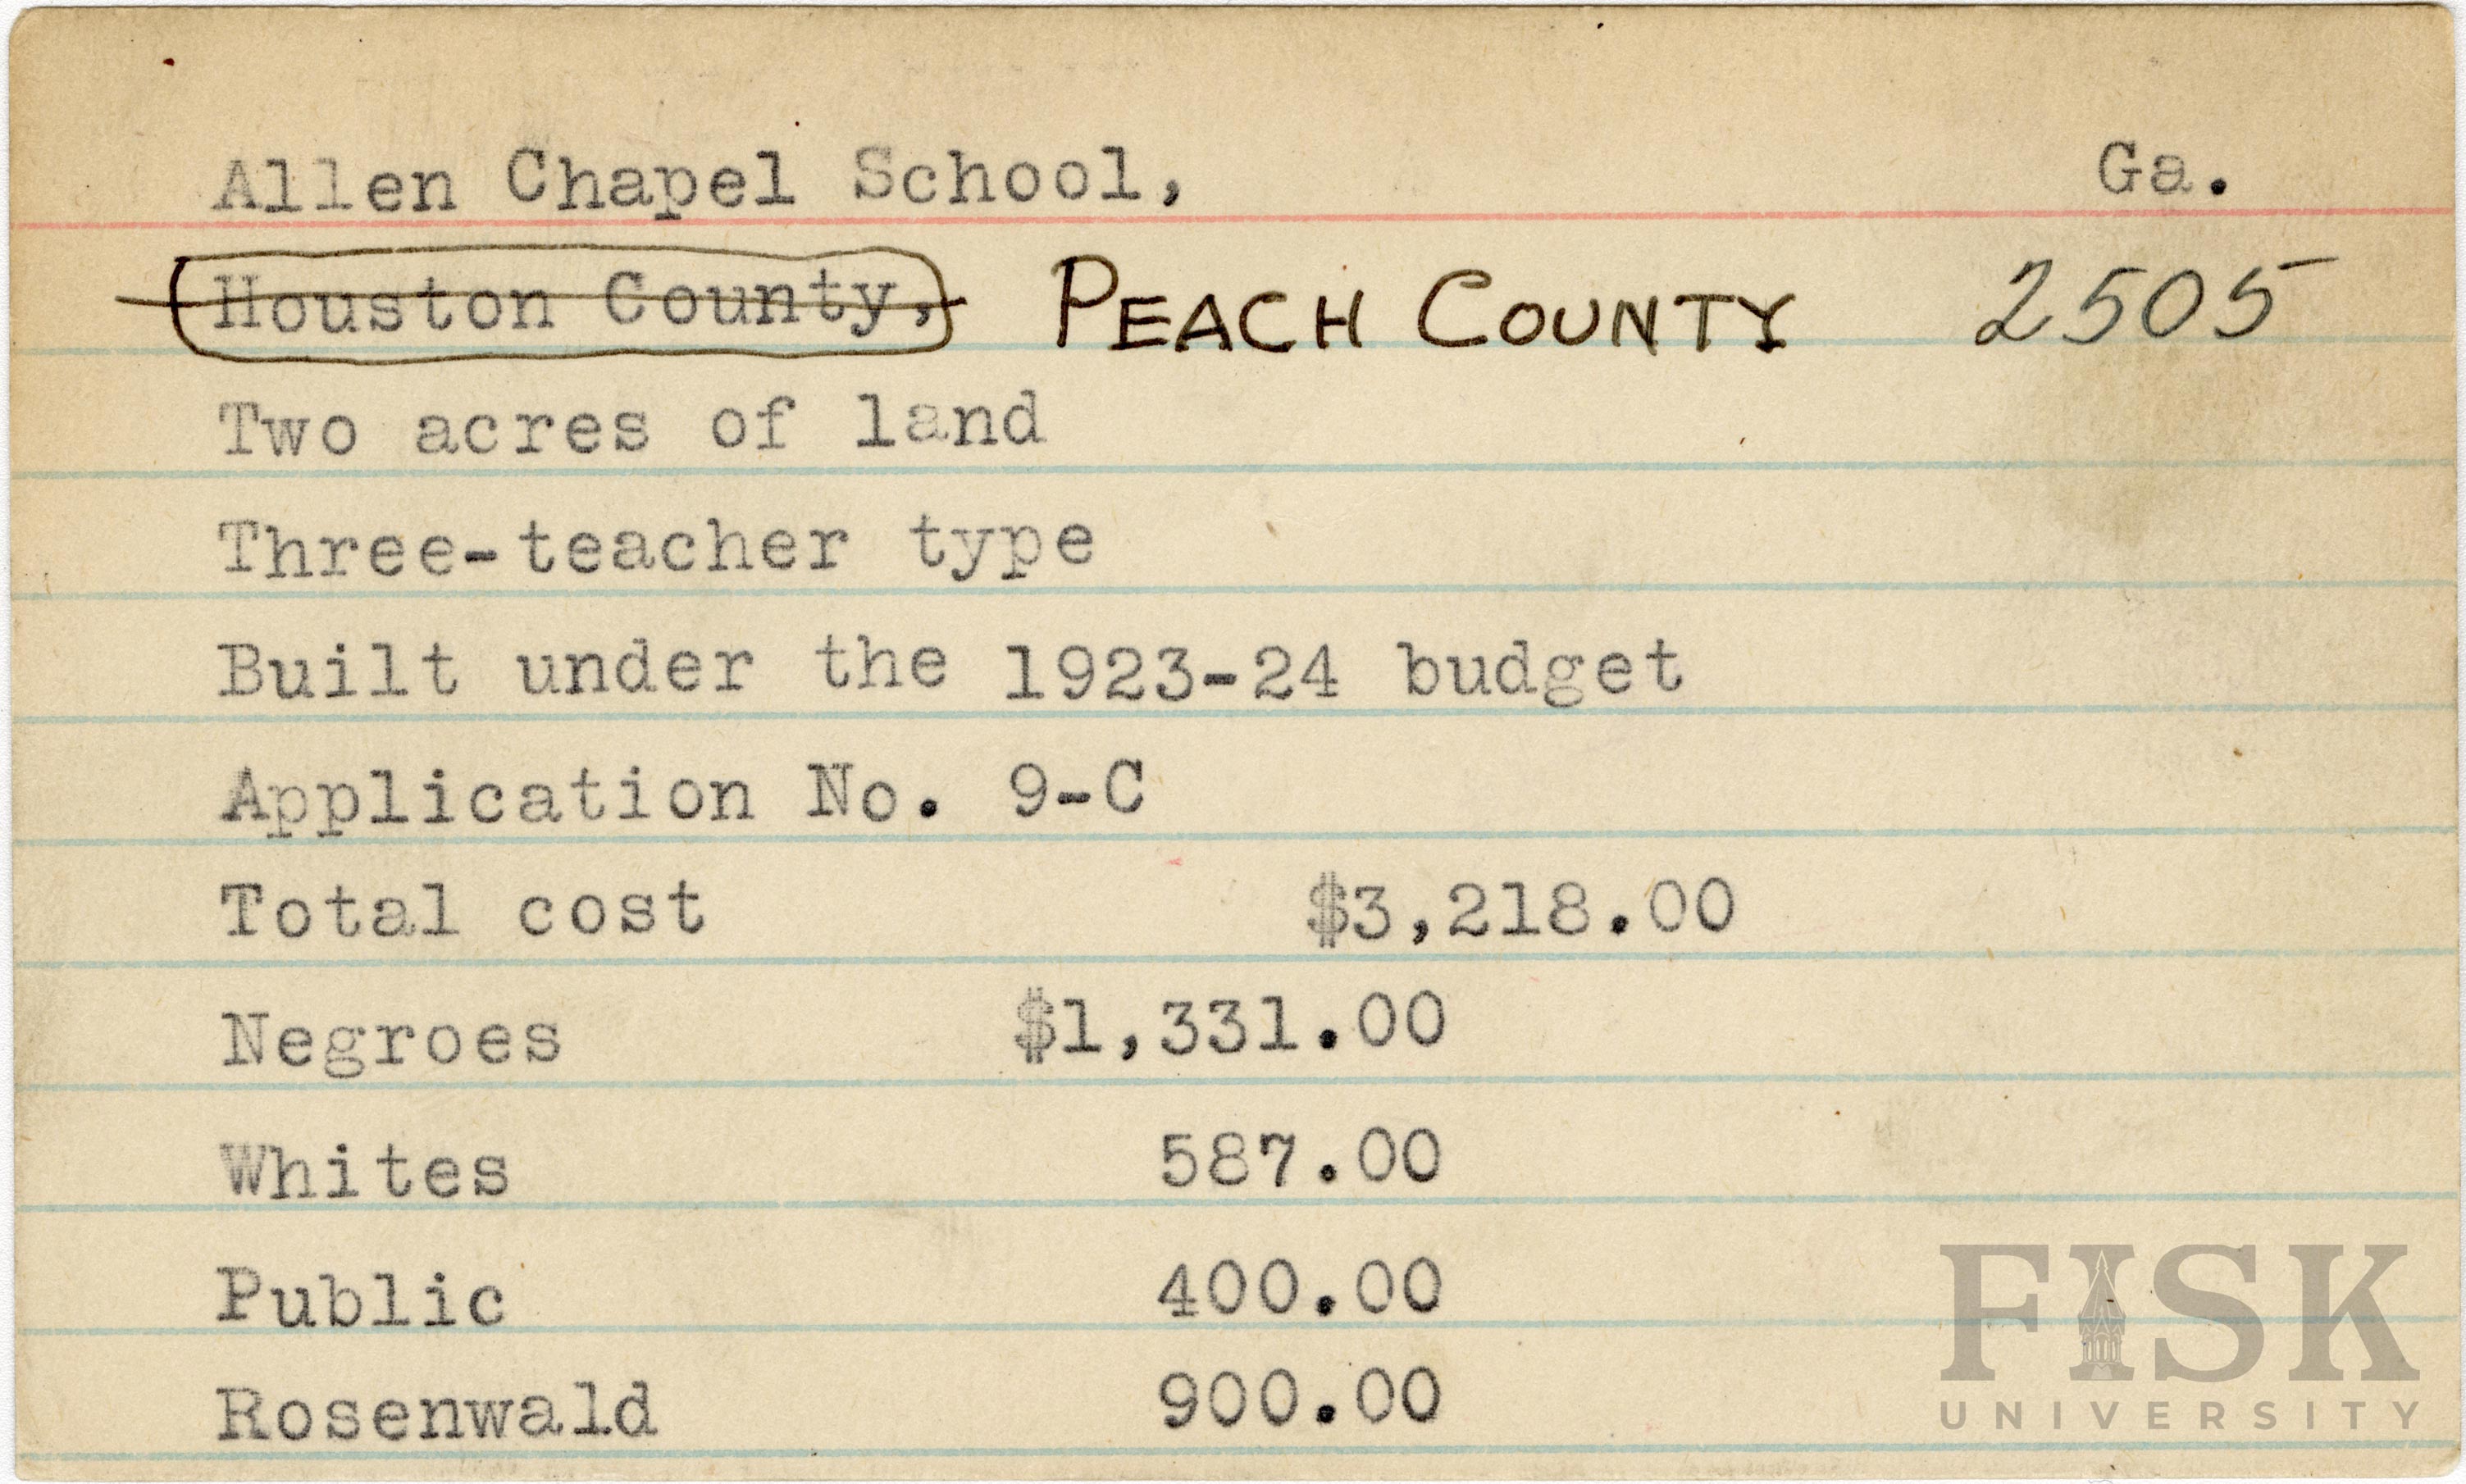 Allen Chapel School, Ga.
Houston County, PEACH COUNTY 2505
Two acres of land
Three-teacher type
Built under the 1923-24 budget
Application No. 9-C
Total cost $3,218.00
Negroes $1,331.00
Whites 587.00
Public 400.00
Rosenwald 900.00
FISK
UNIVERSITY